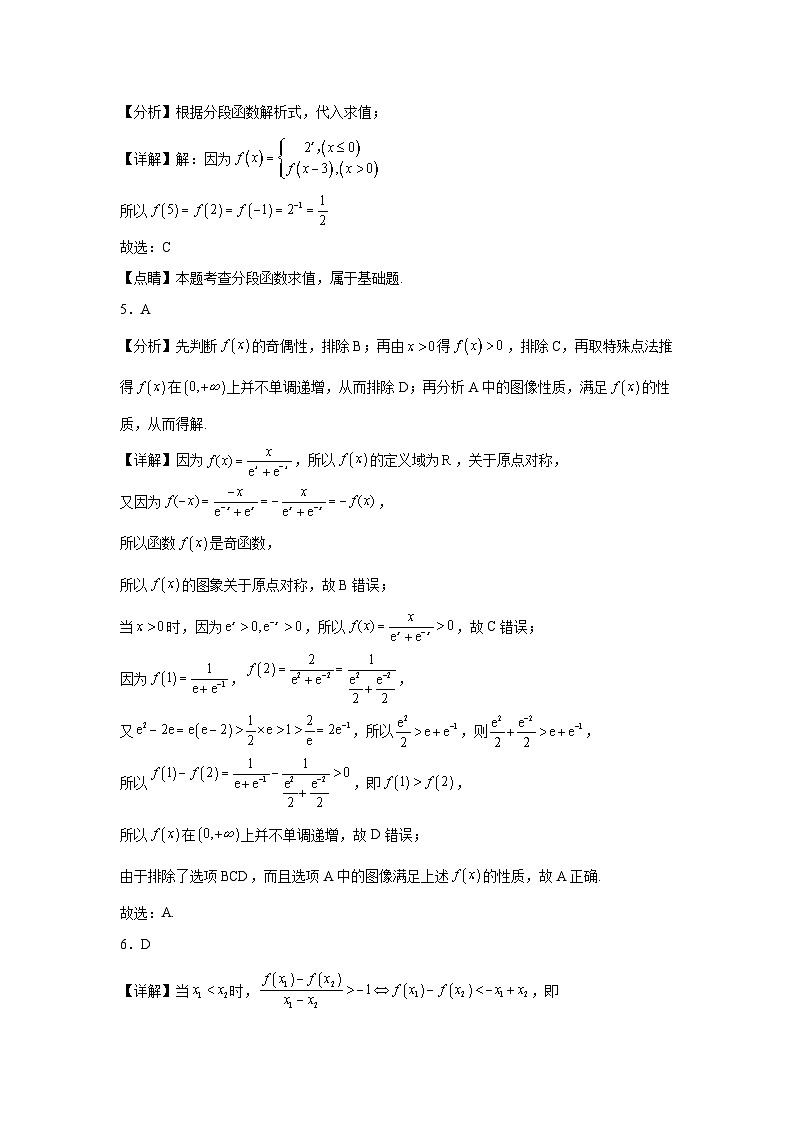 【分析】根据分段函数解析式，代入求值；
【详解】解：因为 f(x)={2^x,(x≤0) f(x−3),(x>0)
所以 f(5)=f(2)=f(−1)=2^{−1}=1/2
故选：C
【点睛】本题考查分段函数求值，属于基础题.
5．A
【分析】先判断 f(x) 的奇偶性，排除 B；再由 x>0 得 f(x)>0，排除 C，再取特殊点法推
得 f(x) 在 (0,+∞) 上并不单调递增，从而排除 D；再分析 A 中的图像性质，满足 f(x) 的性
质，从而得解.
【详解】因为 f(x)=x/(e^x+e^{−x})，所以 f(x) 的定义域为 R，关于原点对称，
又因为 f(−x)=−x/(e^{−x}+e^x)=−x/(e^x+e^{−x})=−f(x)，
所以函数 f(x) 是奇函数，
所以 f(x) 的图象关于原点对称，故 B 错误；
当 x>0 时，因为 e^x>0,e^{−x}>0，所以 f(x)=x/(e^x+e^{−x})>0，故 C 错误；
因为 f(1)=1/(e+e^{−1})，f(2)=2/(e^2+e^{−2})=1/(e^2/2+e^{−2}/2)，
又 e^2−2e=e(e−2)>1/2×e>1>2/e=2e^{−1}，所以 e^2/2>e+e^{−1}，则 e^2/2+e^{−2}/2>e+e^{−1}，
所以 f(1)−f(2)=1/(e+e^{−1})−1/(e^2/2+e^{−2}/2)>0，即 f(1)>f(2)，
所以 f(x) 在 (0,+∞) 上并不单调递增，故 D 错误；
由于排除了选项 BCD，而且选项 A 中的图像满足上述 f(x) 的性质，故 A 正确.
故选：A.
6．D
【详解】当 x₁<x₂ 时，(f(x₁)−f(x₂))/(x₁−x₂)>−1⇔f(x₁)−f(x₂)<−x₁+x₂，即